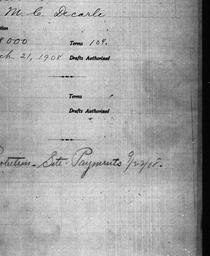 M. C. Decarle
8000 Terms 10%.
ch 21, 1908 Drafts Authorized
Terms
Drafts Authorized
Site Payments